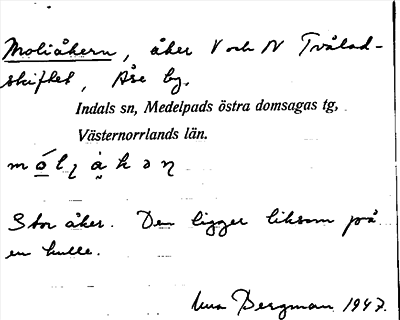 Moliåkern, åker V och N Tvålad-
skiftet, Åse by,
Indals sn, Medelpads östra domsagas tg,
Västernorrlands län.
Stor åker. Den ligger liksom på
en kulle.
Bergman 1947.